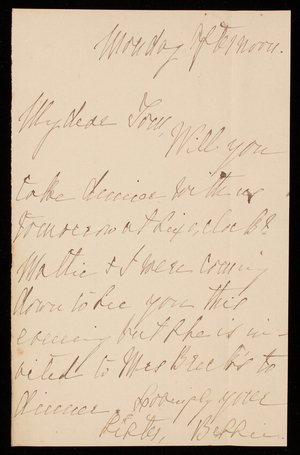 Monday Afternoon.
My dear Tom,
Will you
take dinner with us
tomorrow at six o'clock
Mattie & I were coming
down to see you this
evening but she is in-
vited to Mrs to
dinner. Lovingly your
Sister, Bessie